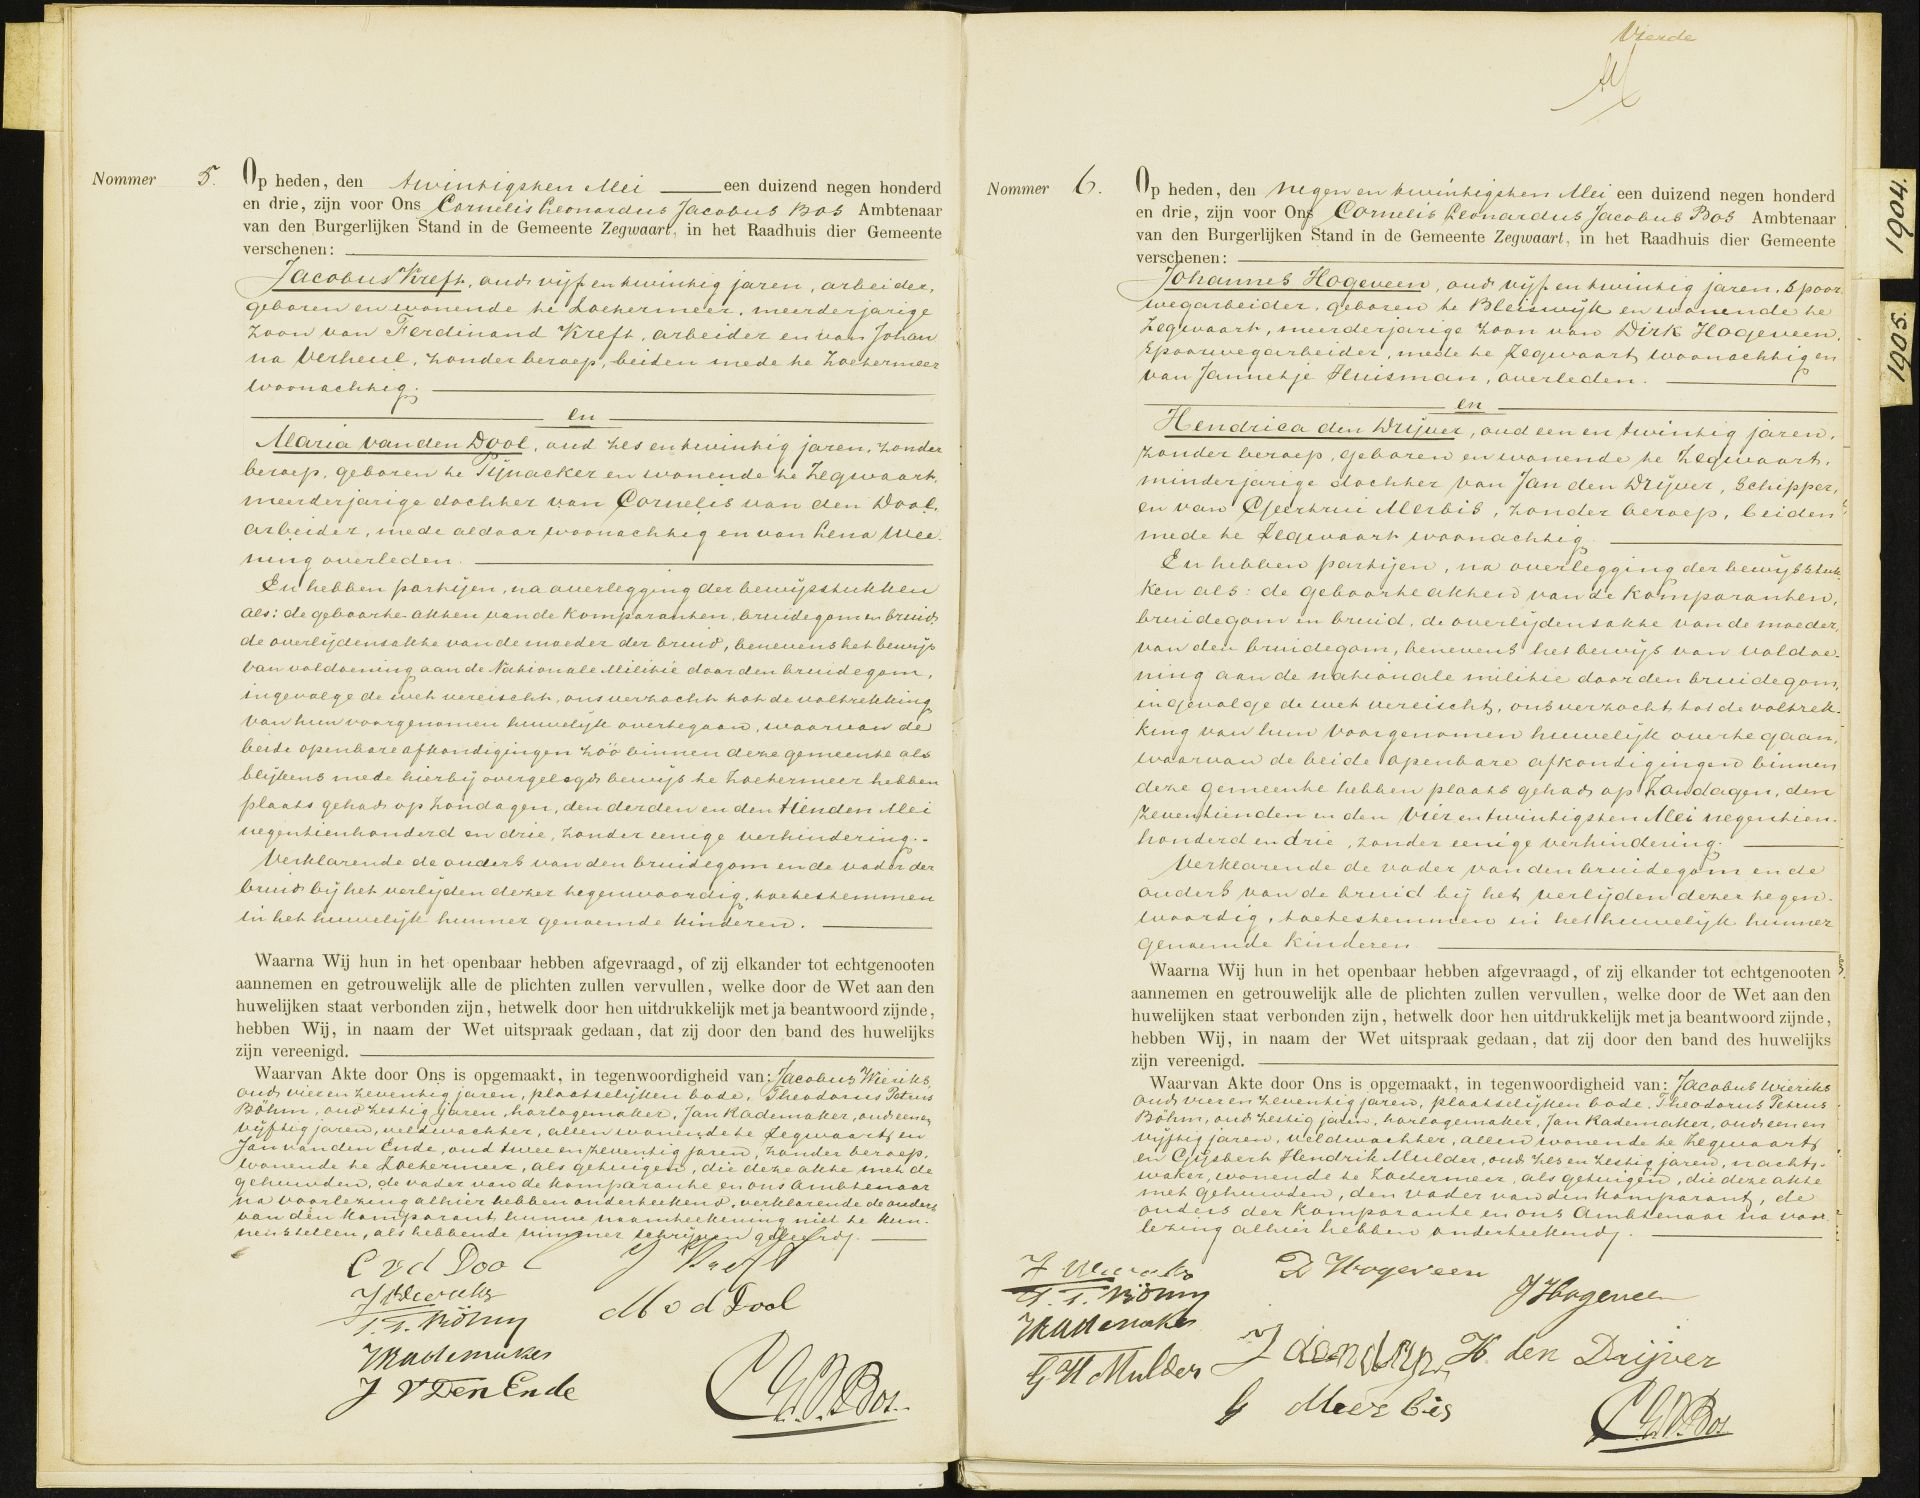 Nommer 5.
Op heden, den twintigsten Mei een duizend negen honderd
en drie, zijn voor Ons Cornelis Leonardus Jacobus Bos Ambtenaar
van den Burgerlijken Stand in de Gemeente Zegwaart, in het Raadhuis dier Gemeente
verschenen:
Jacobus Kreft, oud vijf en twintig jaren, arbeider,
geboren en wonende te Zoetermeer, meerderjarige
zoon van Ferdinand Kreft, arbeider en van Johan
na Verheul, zonder beroep, beiden mede te Zoetermeer
woonachtig.
en
Maria van den Dool, oud zes en twintig jaren, zonder
beroep, geboren te Pijnacker en wonende te Zegwaart,
meerderjarige dochter van Cornelis van den Dool,
arbeider, mede aldaar woonachtig en van Lena Wee
ning overleden.
En hebben partijen, na overlegging der bewijsstukken
als: de geboorte-akten van de komparanten, bruidegom en bruid,
de overlijdensakte van de moeder der bruid, benevens het bewijs
van voldoening aan de Nationale Militie door den bruidegom,
ingevolge de wet vereischt, ons verzocht tot de voltrekking
van hun voorgenomen huwelijk overtegaan, waarvan de
beide openbare afkondigingen zoo binnen deze gemeente als
blijkens mede hierbij overgelegd bewijs te Zoetermeer hebben
plaats gehad op Zondagen, den derden en den tienden Mei
negentienhonderd en drie, zonder eenige verhindering.-
Verklarende de ouders van den bruidegom en de vader der
bruid bij het verlijden dezer tegenwoordig, toetestemmen
in het huwelijk hunner genoemde kinderen.
Waarna Wij hun in het openbaar hebben afgevraagd, of zij elkander tot echtgenooten
aannemen en getrouwelijk alle de plichten zullen vervullen, welke door de Wet aan den
huwelijken staat verbonden zijn, hetwelk door hen uitdrukkelijk met ja beantwoord zijnde,
hebben Wij, in naam der Wet uitspraak gedaan, dat zij door den band des huwelijks
zijn vereenigd.
Waarvan Akte door Ons is opgemaakt, in tegenwoordigheid van: Jacobus Wieriks,
oud vier en zeventig jaren, plaatselijken bode, Theodorus Petrus
Böhm, oud zestig jaren, horlogemaker, Jan Rademaker, oud een en
vijftig jaren, veldwachter, allen wonende te Zegwaart, en
Jan van den Ende, oud twee en zeventig jaren, zonder beroep,
wonende te Zoetermeer, als getuigen, die deze akte met de
gehuwden, de vader van de komparante en ons Ambtenaar
na voorlezing alhier hebben onderteekend, verklarende de ouders
van den komparant hunne naamteekening niet te kun-
nen stellen, als hebbende nimmer schrijven geleerd.
C v d Dool J Kreft
J Wieriks
M v d Dool
T. P. Böhm
JRademaker
J V Den Ende
C L J Bos.
Vierde
Nommer 6.
Op heden, den negen en twintigsten Mei een duizend negen honderd
en drie, zijn voor Ons Cornelis Leonardus Jacobus Bos Ambtenaar
van den Burgerlijken Stand in de Gemeente Zegwaart, in het Raadhuis dier Gemeente
verschenen:
Johannes Hogeveen, oud vijf en twintig jaren, spoor
wegarbeider, geboren te Bleiswijk en wonende te
Zegwaart, meerderjarige zoon van Dirk Hogeveen,
spoorwegarbeider, mede te Zegwaart woonachtig en
van Jannetje Huisman, overleden.
en
Hendrica den Drijver, oud een en twintig jaren,
zonder beroep, geboren en wonende te Zegwaart,
minderjarige dochter van Jan den Drijver, Schipper,
en van Geertrui Merbis, zonder beroep, beiden
mede te Zegwaart woonachtig.
En hebben partijen, na overlegging der bewijsstuk-
ken als: de geboorteakten van de komparanten,
bruidegom en bruid, de overlijdensakte van de moeder
van den bruidegom, benevens het bewijs van voldoe-
ning aan de nationale militie door den bruidegom,
ingevolge de wet vereischt, ons verzocht tot de voltrek-
king van hun voorgenomen huwelijk overtegaan,
waarvan de beide openbare afkondigingen binnen
deze gemeente hebben plaats gehad op Zondagen, den
zeventienden en den vier en twintigsten Mei negentien-
honderd en drie, zonder eenige verhindering.
Verklarende de vader van den bruidegom en de
ouders van de bruid bij het verlijden dezer tegen-
woordig, toetestemmen in het huwelijk hunner
genoemde kinderen.
Waarna Wij hun in het openbaar hebben afgevraagd, of zij elkander tot echtgenooten
aannemen en getrouwelijk alle de plichten zullen vervullen, welke door de Wet aan den
huwelijken staat verbonden zijn, hetwelk door hen uitdrukkelijk met ja beantwoord zijnde,
hebben Wij, in naam der Wet uitspraak gedaan, dat zij door den band des huwelijks
zijn vereenigd.
Waarvan Akte door Ons is opgemaakt, in tegenwoordigheid van: Jacobus Wieriks
oud vier en zeventig jaren, plaatselijken bode, Theodorus Petrus
Böhm, oud zestig jaren, horlogemaker, Jan Rademaker, oud een en
vijftig jaren, veldwachter, allen wonende te Zegwaart,
en Gijsbert Hendrik Mulder, oud zes en zestig jaren, nacht-
waker, wonende te Zoetermeer, als getuigen, die deze akte
met gehuwden, den vader van den komparant, de
ouders der komparante en ons Ambtenaar na voor
lezing alhier hebben onderteekend.
J Wieriks D Hogeveen
T. P. Böhm J Hogeveen
JRademaker
G H Mulder J den Drijver H den Drijver
G Meerbis
C L J Bos
1904.
1905.